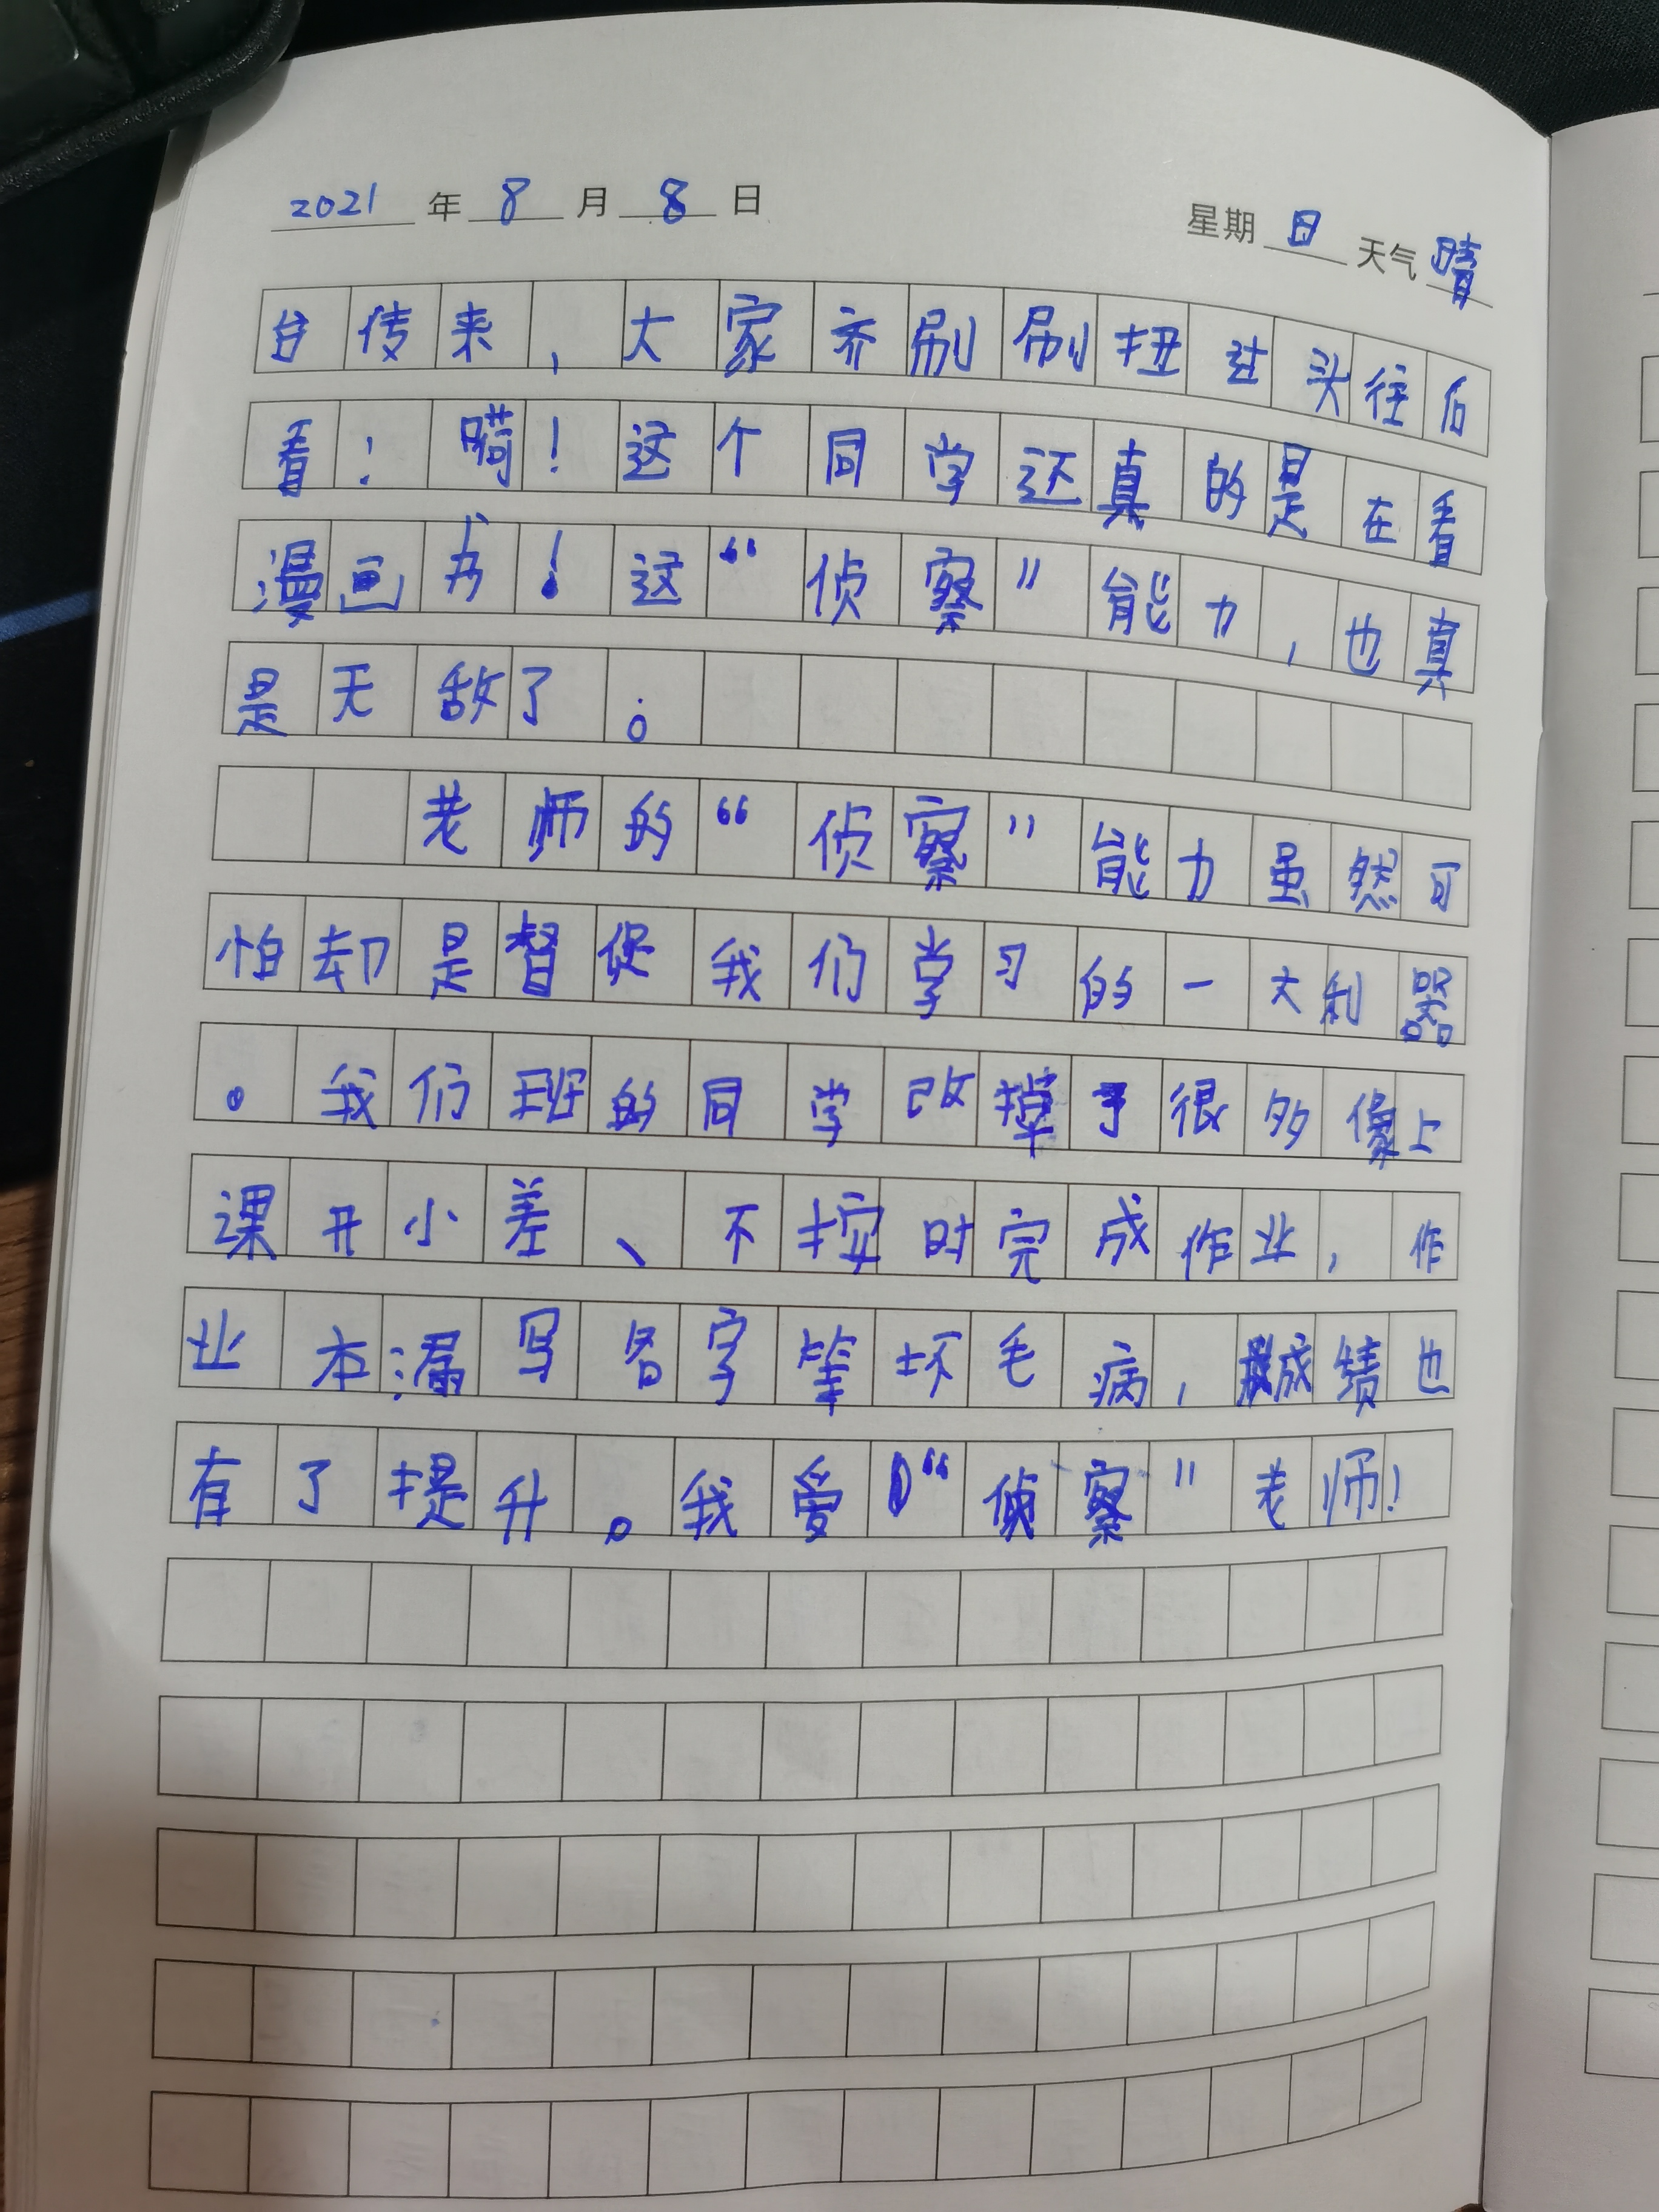 2021 年 8 月 8 日 星期 日 天气 晴
台传来,大家齐刷刷扭过头往后
看!嗬!这个同学还真的是在看
漫画书!这“侦察”能力,也真
是无敌了。
老师的“侦察”能力虽然可
怕却是督促我们学习的一大利器
。我们班的同学改掉了很多像上
课开小差、不按时完成作业,作
业本漏写名字等坏毛病,成绩也
有了提升。我爱“侦察”老师!